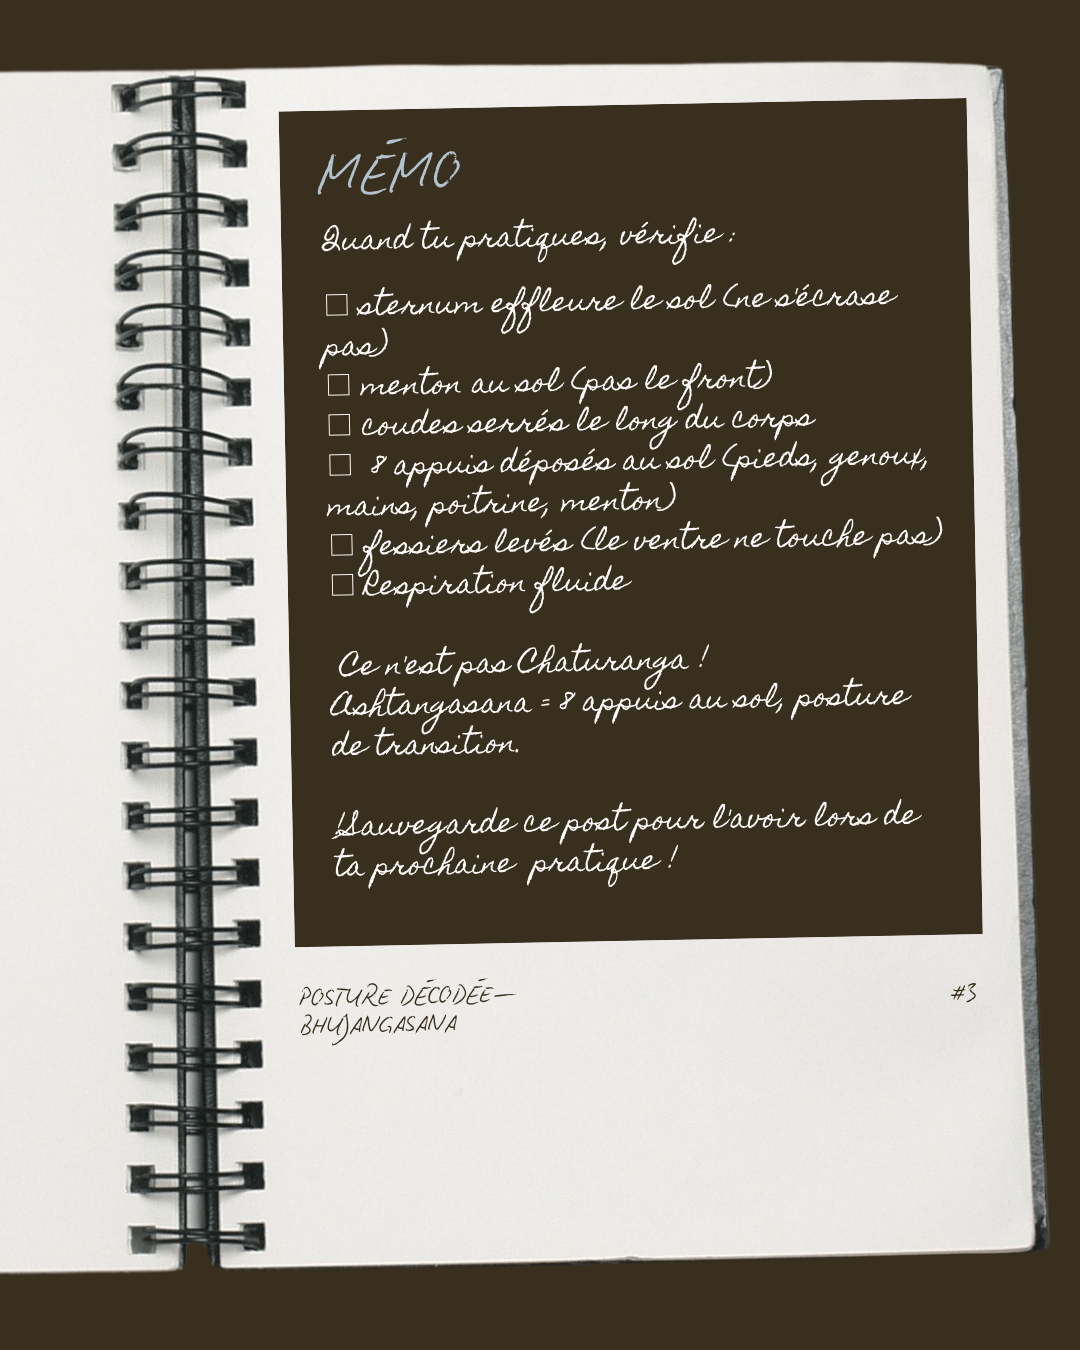 MÉMO
Quand tu pratiques, vérifie :
☐ sternum effleure le sol (ne s'écrase
pas)
☐ menton au sol (pas le front)
☐ coudes serrés le long du corps
☐ 8 appuis déposés au sol (pieds, genoux,
mains, poitrine, menton)
☐ fessiers levés (le ventre ne touche pas)
☐ Respiration fluide
Ce n'est pas Chaturanga !
Ashtangasana = 8 appuis au sol, posture
de transition.
!Sauvegarde ce post pour l'avoir lors de
ta prochaine pratique !
POSTURE DÉCODÉE—
BHUJANGASANA
#3